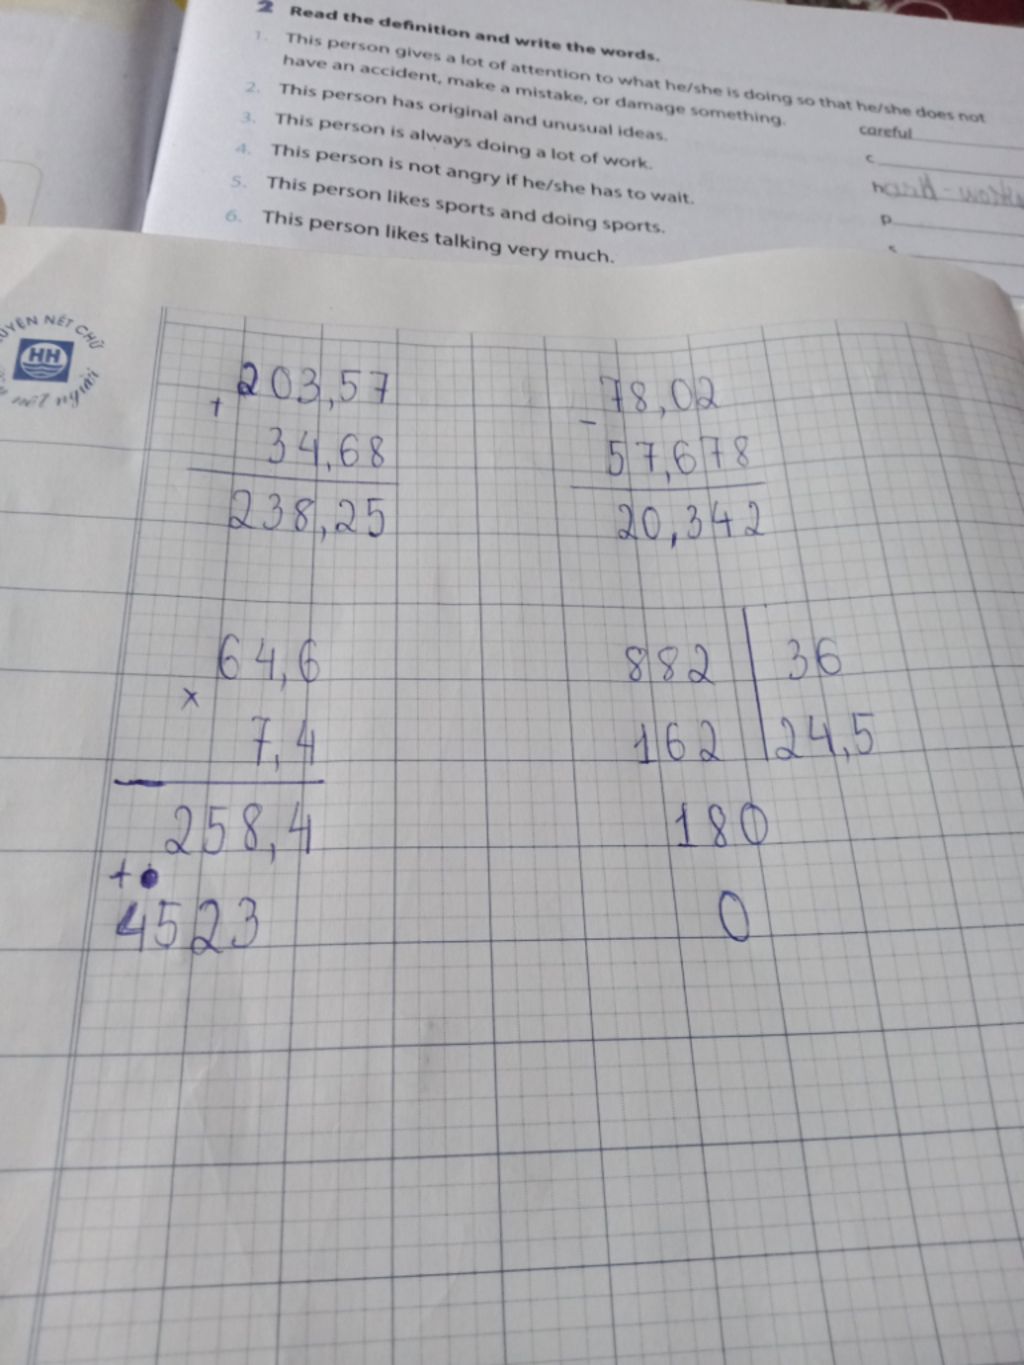 2 Read the definition and write the words.
1. This person gives a lot of attention to what he/she is doing so that he/she does not
have an accident, make a mistake, or damage something.
careful
2. This person has original and unusual ideas.
c
3. This person is always doing a lot of work.
hard-
4. This person is not angry if he/she has to wait.
p
5. This person likes sports and doing sports.
s
6. This person likes talking very much.
UYỆN NÉT CHỮ
HH
nết người
203,57
+
34,68
238,25
78,02
-
57,678
20,342
64,6
x
7,4
258,4
+
4523
882 36
162 24,5
180
0